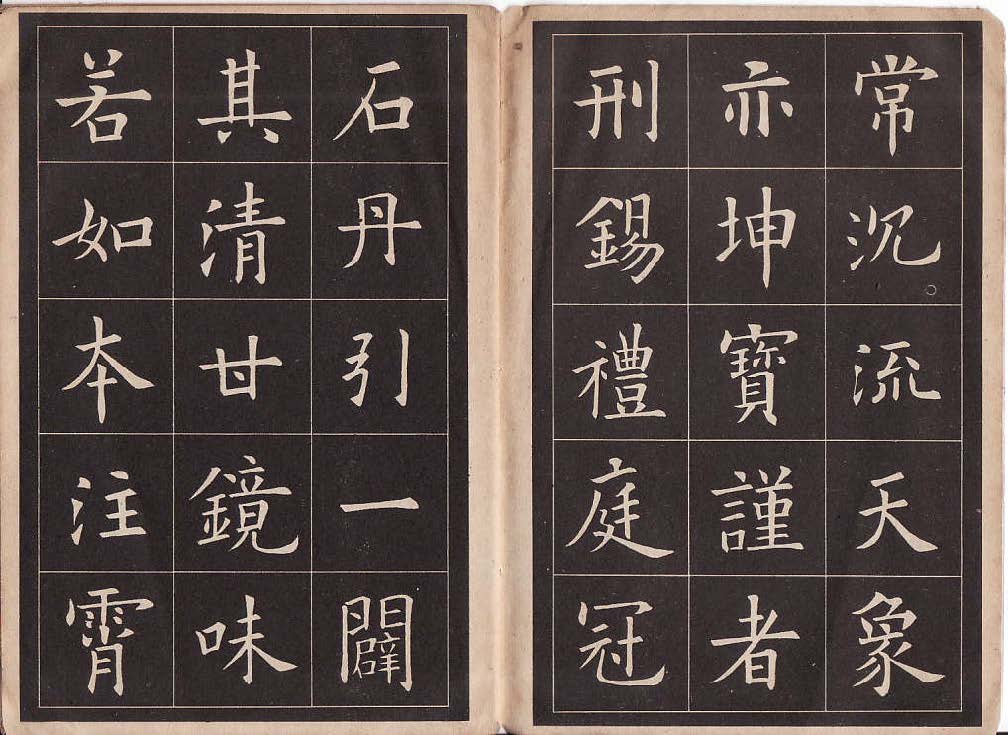 常沉流天象
亦坤寶謹者
刑錫禮庭冠
石丹引一闢
其清甘鏡味
若如本注霄